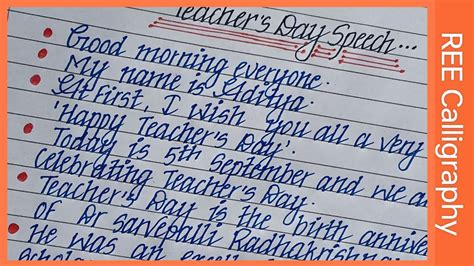 Teacher's Day Speech...
Good morning everyone.
My name is Aditya.
At first, I wish you all a very
'Happy Teacher's Day'.
Today is 5th September and we a
Celebrating Teacher's Day.
Teacher's Day is the birth annive
of Dr Sarvepalli Radhakrishna
He was an excell
REE Calligraphy